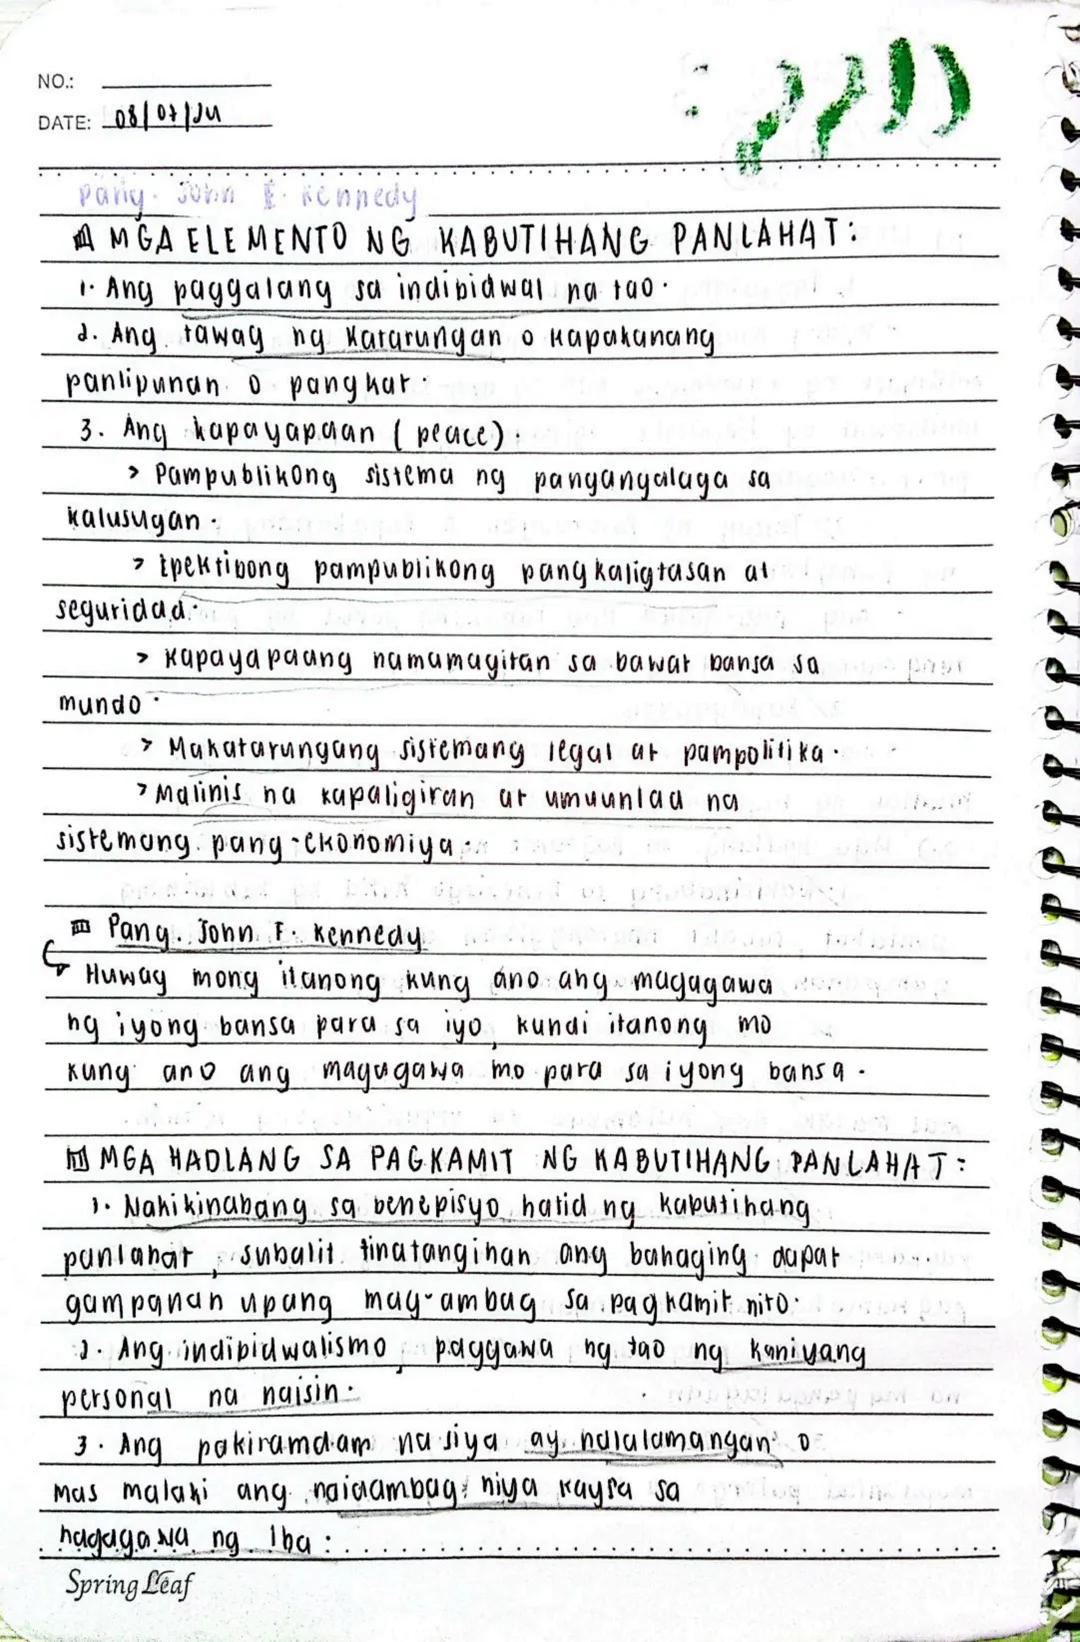 NO.:
DATE: 08/07/24
Pang. John F. Kennedy
MGA ELEMENTO NG KABUTIHANG PANLAHAT:
1. Ang paggalang sa indibidwal na tao.
2. Ang tawag ng katarungan o kapakanang
panlipunan o pangkat.
3. Ang kapayapaan (peace).
> Pampublikong sistema ng pangangalaga sa
kalusugan.
> Epektibong pampublikong pangkaligtasan at
seguridad.
> Kapayapaang namamagitan sa bawat bansa sa
mundo.
> Makatarungang sistemang legal at pampolitika.
> Malinis na kapaligiran at umuunlad na
sistemang pang-ekonomiya.
Pang. John F. Kennedy
Huwag mong itanong kung ano ang magagawa
ng iyong bansa para sa iyo, kundi itanong mo
kung ano ang magagawa mo para sa iyong bansa.
MGA HADLANG SA PAGKAMIT NG KABUTIHANG PANLAHAT:
1. Nakikinabang sa benepisyo hatid ng kabutihang
panlahat, subalit tinatangihan ang bahaging dapat
gampanan upang mag-ambag sa pagkamit nito.
2. Ang indibidwalismo, paggawa ng tao ng kaniyang
personal na naisin.
3. Ang pakiramdam na siya ay nalalamangan o
mas malaki ang naiaambag niya kaysa sa
nagagawa ng iba.
Spring Leaf